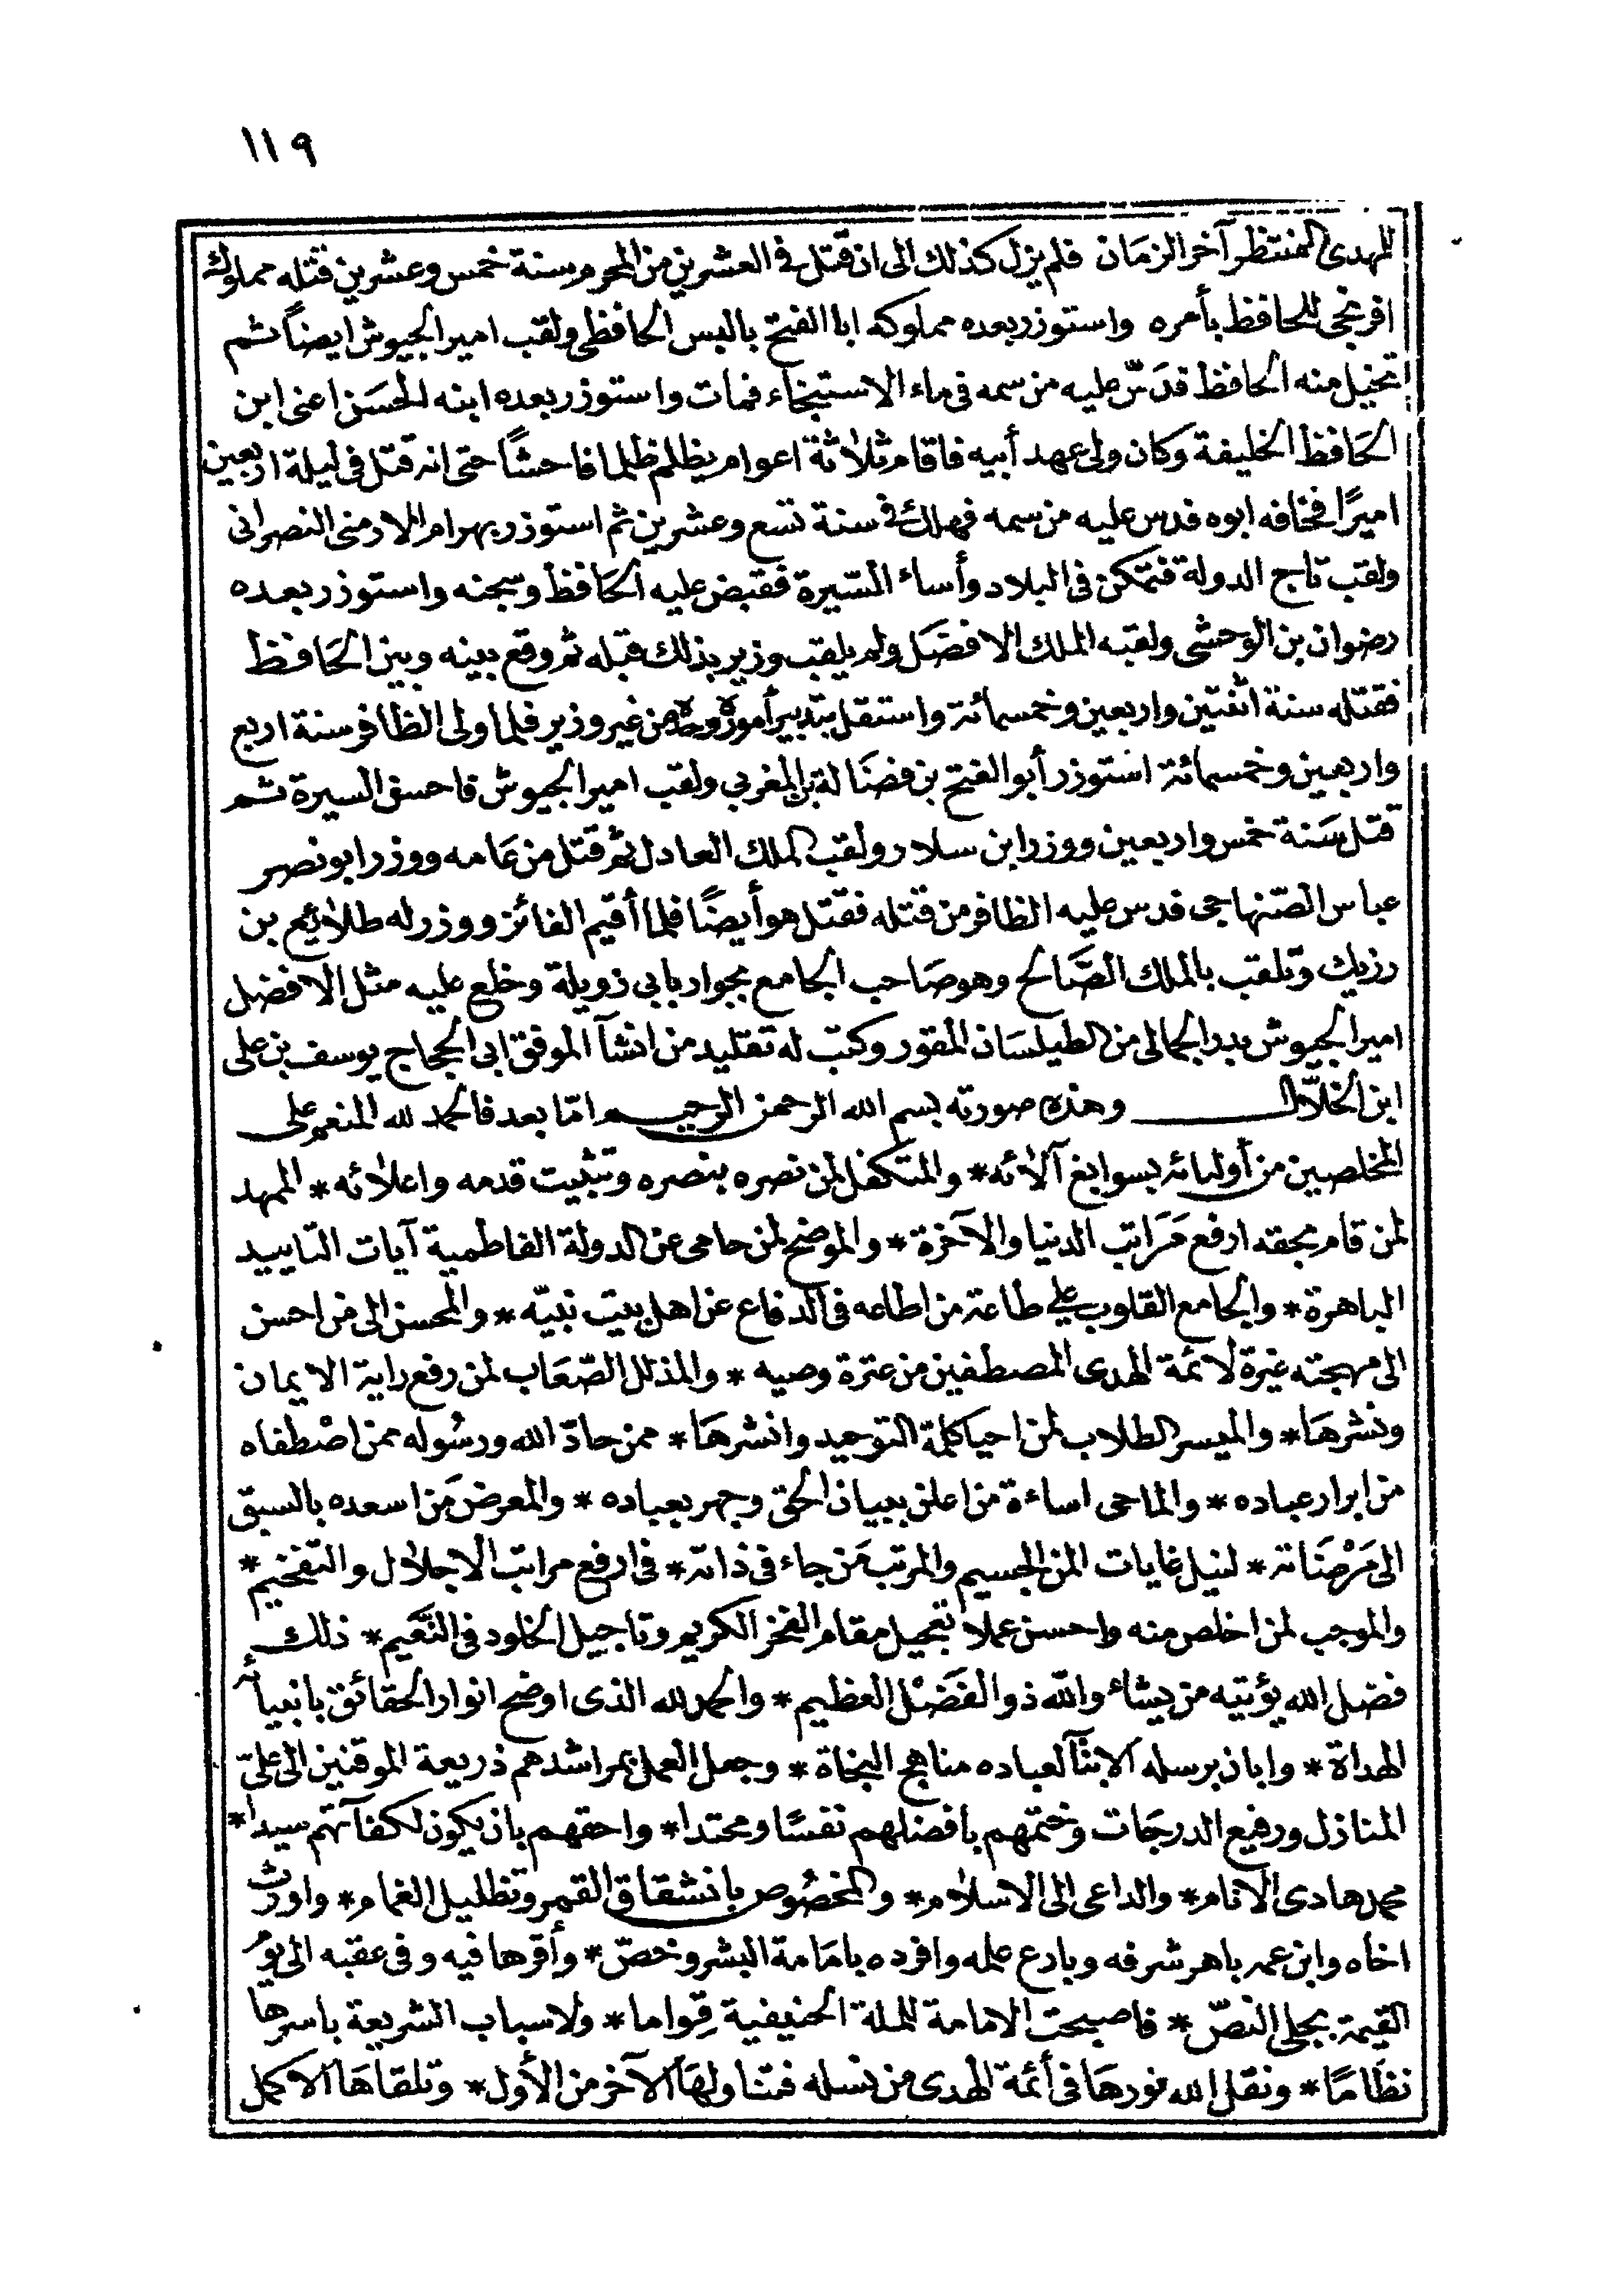 ١١٩
للمهدى المنتظر آخر الزمان فلم يزل كذلك الى ان قتل فى العشرين من المحرم سنة خمس وعشرين قتله مملوك
افرنجى للحافظ بأمره واستوزر بعده مملوكه ابا الفتح بالبس الحافظى ولقب امير الجيوش ايضاً ثم
تخيل منه الحافظ فدسّ عليه من سمه فى ماء الاستنجاء فمات واستوزر بعده ابنه الحسن اعنى ابن
الحافظ الخليفة وكان ولى عهد أبيه فاقام ثلاثة اعوام يظلم ظلما فاحشاً حتى انه قتل فى ليلة اربعين
اميرًا فخافه ابوه فدس عليه من سمه فهلك فى سنة تسع وعشرين ثم استوزر بهرام الارمنى النصرانى
ولقب تاج الدولة فتمكن فى البلاد وأساء السّيرة فقبض عليه الحَافظ وسجنه واستوزر بعده
رضوان بن الوحشى ولقبه الملك الافضَل ولم يلقب وزير بذلك قبله ثم وقع بينه وبين الحَافظ
فقتله سنة اثنتين واربعين وخمسمائة واستقل بتدبير أموره وحده من غير وزير فلما ولى الظافر سنة اربع
واربعين وخمسمائة استوزر أبو الفتح بن فضَالة بن المغربي ولقب امير الجيوش فاحسن السيرة ثم
قتل سَنة خمس واربعين ووزر ابن سلار ولقب الملك العادل ثم قتل من عَامه ووزر ابو نصر
عباس الصّنهاجى فدس عليه الظافر من قتله فقتل هو أيضًا فلما أقيم الفائز ووزر له طلائع بن
رزيك وتلقب بالملك الصَّالح وهو صَاحب الجامع بجوار بابى زويلة وخلع عليه مثل الافضل
امير الجيوش بدر الجمالى من الطيلسَان المقور وكتب له تقليد من انشآ الموفق ابى الحجاج يوسف بن على
ابن الخلّال وهذه صورته بسم الله الرحمن الرحيم امّا بعد فالحمد لله المنعم على
المخلصين من أوليائه بسوابغ آلائه * والمتكفل لمن نصره بنصره وتثبيت قدمه واعلائه * الممهد
لمن قام بحقه ارفع مَرَاتب الدنيا والآخرة * والموضح لمن حامى عن الدولة الفاطمية آيات التاييد
الباهرة * والجامع القلوب على طاعة من اطاعه فى الدفاع عن اهل بيت نبيّه * والمحسن الى من احسن
الى مهجته غيرة لائمة الهدى المصطفين من عترة وصيه * والمذلل الصّعَاب لمن رفع راية الايمان
ونشرهَا * والميسر الطلاب لمن احيا كلمة التوحيد وانشرهَا * ممن حادّ الله ورسُوله ممن اصْطفاه
من ابرار عباده * والماحى اساءة من اعلن ببيان الحق وجهر بعباده * والمعرض مَن اسعده بالسبق
الى مَرْضَاته * لنيل غايات المن الجسيم والمرتب مَن جاء فى ذاته * فى ارفع مراتب الاجلال والتفخيم *
والموجب لمن اخلص منه واحسن عملا تعجيل مقام الفخر الكريم وتاجيل الخلود فى النَّعيم * ذلك
فضل الله يؤتيه من يشاء والله ذو الفَضْل العظيم * والحمد لله الذى اوضح انوار الحقائق بانبيائه
الهداة * وابان برسله الابنَّآ لعباده مناهج النجاة * وجعل العمل بمراشدهم ذريعة الموقنين الى علىّ
المنازل ورفيع الدرجَات وختمهم بافضلهم نفسًا ومحتدا * واحقهم بان يكون لكفآتهم سيدا *
محمد هادى الانام * والداعى الى الاسلام * والمخصُوص بانشقاق القمر وتظليل الغمام * واورث
اخاه وابن عمه باهر شرفه وبارع علمه وافرده بامَامة البشر وخصّ * وأقرها فيه وفى عقبه الى يوم
القيمة بجلى النصّ * فاصبحت الامامة للملة الحنيفية قِواما * ولاسباب الشريعة باسرها
نظَامًا * ونقل الله نورهَا فى أئمة الهدى من نسله فتناولهَا الآخر من الأول * وتلقاهَا الاكمل